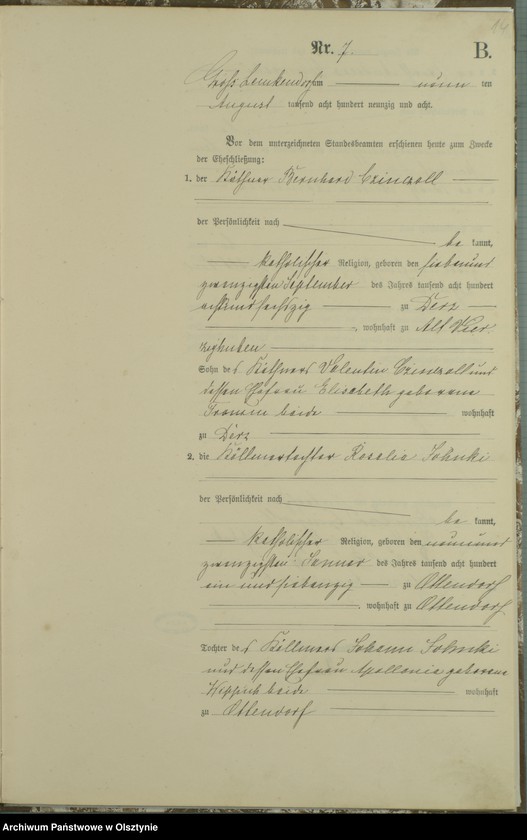 14
Nr. 7. B.
Groß Lemkendorf am neun ten
August tausend acht hundert neunzig und acht.
Vor dem unterzeichneten Standesbeamten erschienen heute zum Zwecke
der Eheschließung:
1. der Käthner Bernhard
der Persönlichkeit nach
be kannt,
katholischer Religion, geboren den siebenund
zwanzigsten September des Jahres tausend acht hundert
achtundsechszig zu Derz
, wohnhaft zu Alt Vier
zighuben
Sohn des Käthners Valentin und
dessen Ehefrau Elisabeth geborene
beide wohnhaft
zu Derz
2. die Köllmertochter Rosalia
der Persönlichkeit nach
be kannt,
katholischer Religion, geboren den neunund
zwanzigsten Januar des Jahres tausend acht hundert
ein und siebenzig zu Ottendorf
, wohnhaft zu Ottendorf
Tochter des Köllmers Johann
und dessen Ehefrau Apollonia geborene
beide wohnhaft
zu Ottendorf
Archiwum Państwowe w Olsztynie